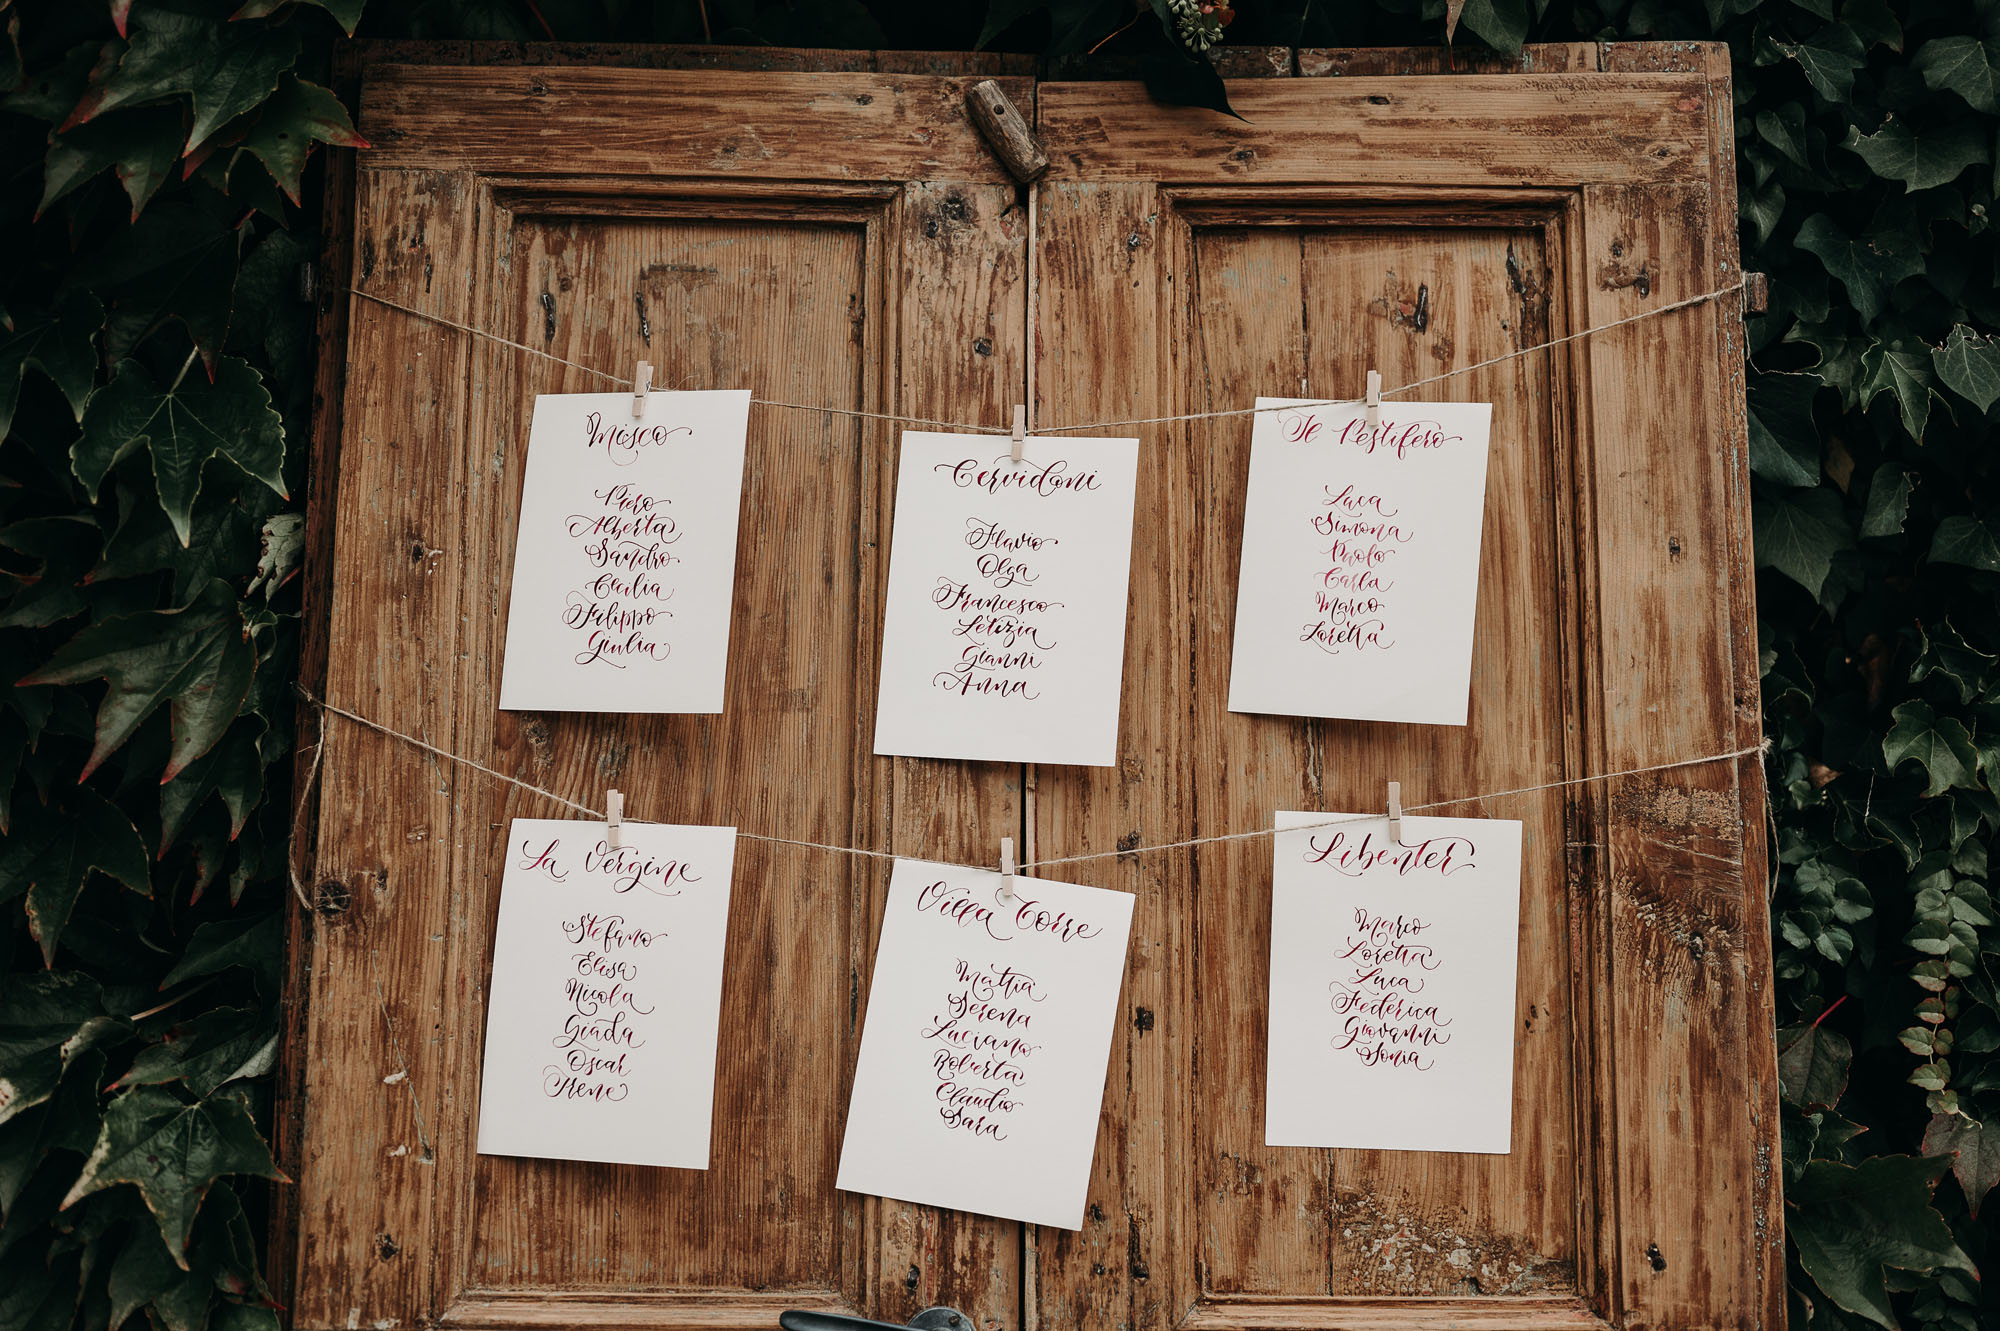 Misco
Piero
Alberta
Sandro
Cecilia
Filippo
Giulia
Cervidoni
Flavio
Olga
Francesco
Letizia
Gianni
Anna
Il Pestifero
Luca
Simona
Paolo
Carla
Marco
Loretta
La Vergine
Stefano
Elisa
Nicola
Giada
Oscar
Irene
Villa Torre
Mattia
Serena
Luciano
Roberta
Claudio
Sara
Libenter
Marco
Loretta
Luca
Federica
Giovanni
Sonia